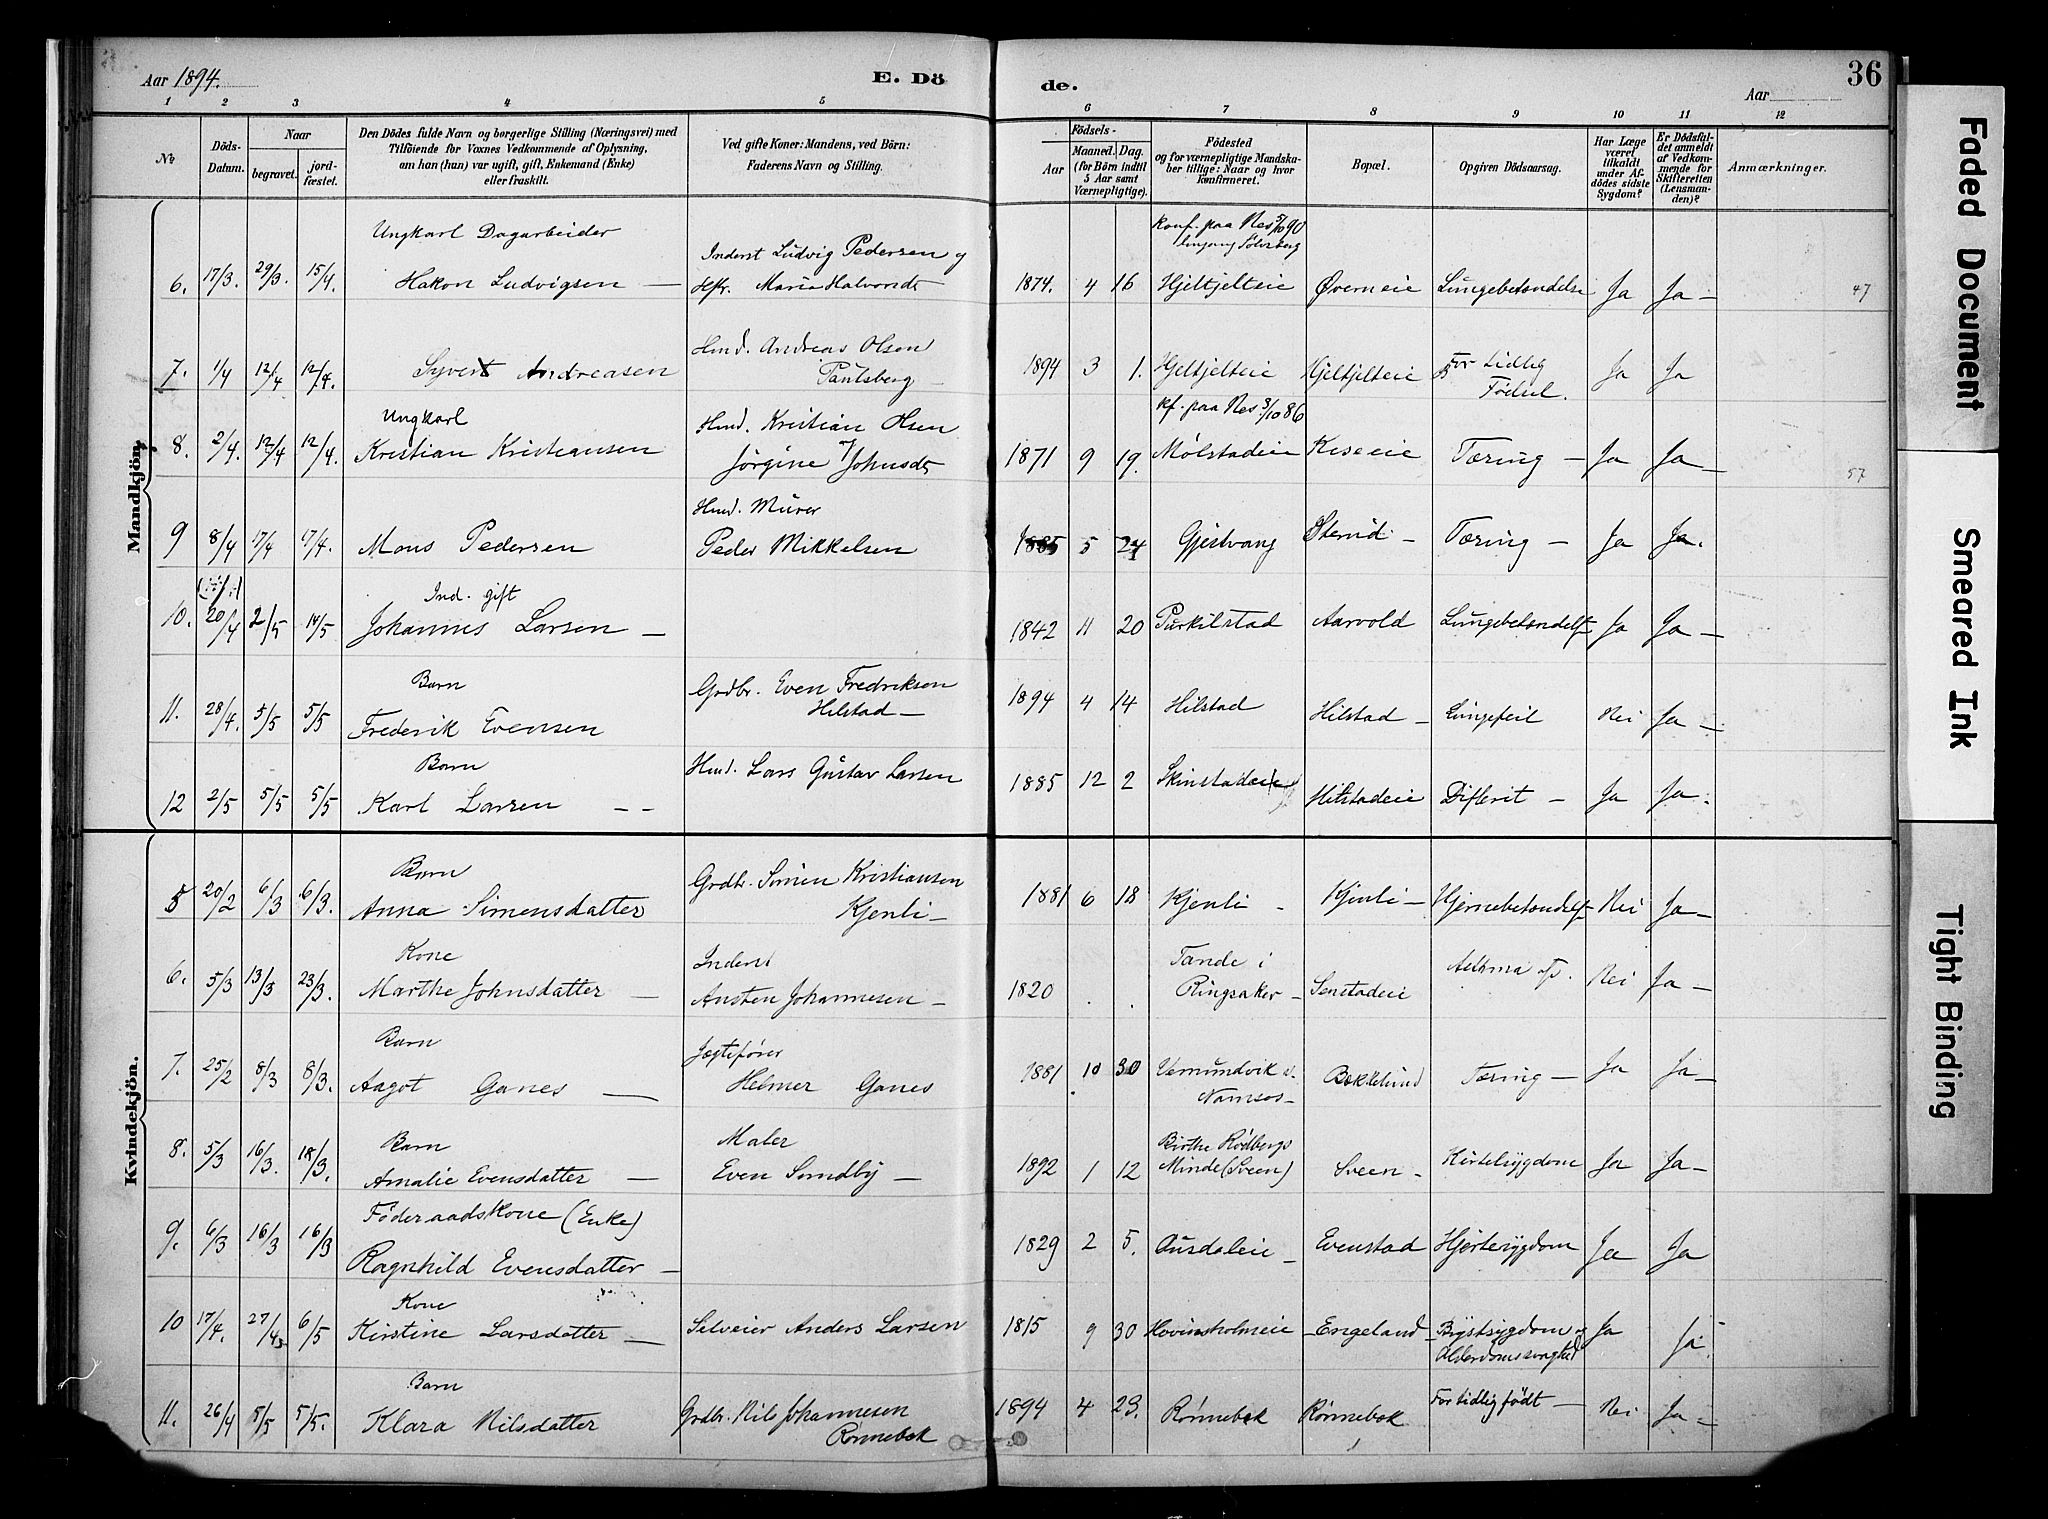 Aar 1894.
E. Dö
de.
Aar
36
1 2 3 4 5 6 7 8 9 10 11 12
No
Döds-
Datum.
Naar
begravet.
jord-
fæstet.
Den Dödes fulde Navn og borgerlige Stilling (Næringsvei) med
Tilföiende for Voxnes Vedkommende af Oplysning,
om han (hun) var ugift, gift, Enkemand (Enke)
eller fraskilt.
Ved gifte Koner: Mandens, ved Börn:
Faderens Navn og Stilling.
Födsels-
Aar
Maaned. Dag.
(for Börn indtil
5 Aar samt
Værnepligtige).
Födested
og for værnepligtige Mandska-
ber tillige: Naar og hvor
konfirmeret.
Bopæl.
Opgiven Dödsaarsag.
Har Læge
været
tilkaldt
under Af-
dödes sidste
Sygdom?
Er Dödsfal-
det anmeldt
af Vedkom-
mende for
Skifteretten
(Lensman-
den)?
Anmærkninger.
Mandkjön.
Ungkarl Dagarbeider
Inderst Ludvig Pedersen og
konf. paa Nes 5/10 90
6. 17/3. 29/3. 15/4. Hakon Ludvigsen — Hfr. Maria Halvorsdr 1874. 4 16 Hjeltjelteie Øverneie Lungebetændelse Ja Ja — 47
Hmd. Andreas Olsen
7. 1/4 12/4 12/4. Syvert Andreasen Paulsberg — 1894 3 1. Hjeltjelteie Hjeltjelteie For tidlig Ja Ja
Fødsel.
Ungkarl
Hmd. Kristian Olsen
kf. paa Nes 3/10 86
8. 2/4. 12/4 12/4. Kristian Kristiansen Jørgine Johnsdr 1871 9 19. Mølstadeie Kiseeie Tæring — Ja Ja — 57
Hmd. Murer
9 8/4 17/4 17/4. Mons Pedersen Peder Mikkelsen 1885 5 24 Gjestvang Stenid — Tæring — Ja Ja.
Ind. gift
10. 20/4 2/5 14/5 Johannes Larsen — 1842 11 20 Purkilstad Aarvold Lungebetændelse Ja Ja —
Barn
Grdbr. Even Fredriksen
11. 28/4. 5/5 5/5 Frederik Evensen Hilstad — 1894 4 14 Hilstad Hilstad — Lungefeil Nei Ja —
Barn
12 2/5 5/5 5/5 Karl Larsen — — Hmd. Lars Gustav Larsen 1885 12 2 Skinstadeie Hilstadeie Difterit — Ja Ja.
Kvindekjön.
Barn
Grdbr. Simen Kristiansen
5 20/2 6/3 6/3. Anna Simensdatter Kjenli — 1881 6 18 Kjenli — Kjenli — Hjernebetændelse Nei Ja —
Kone
Inderst
Tande i
6. 5/3 13/3 23/3. Marthe Johnsdatter — Austen Johannesen — 1820 . . Ringsaker — Senstadeie Asthma Nei Ja —
Barn
Jægtefører
7. 25/2 8/3 8/3. Aagot Ganes — Helmer Ganes 1881 10 30 Vemundvik v. Namsos — Bækkelund Tæring — Ja Ja —
Barn
Maler
Birthe Rødbergs
8. 5/3 16/3. 18/3. Amalie Evensdatter — Even Sundby — 1892 1 12 Minde (Sveen) Sveen — Kirtelsygdom Ja Ja —
Føderaadskone (Enke)
9. 6/3 16/3 16/3 Ragnhild Evensdatter — 1829 2 5. Ousdaleie — Evenstad Hjertesygdom Ja Ja
Kone
10 17/4. 27/4 6/5 Kirstine Larsdatter — Selveier Anders Larsen 1815 9 30 Hovinsholmeie — Engeland — Brystsygdom og Ja Ja.
Alderdomssvaghed
Barn
11. 26/4 5/5 5/5. Klara Nilsdatter Grdbr. Nils Johannesen 1894 4 23. Rønnebek Rønnebek For tidlig født — Nei Ja —
Rønnebek
Faded Document
Smeared Ink
Tight Binding